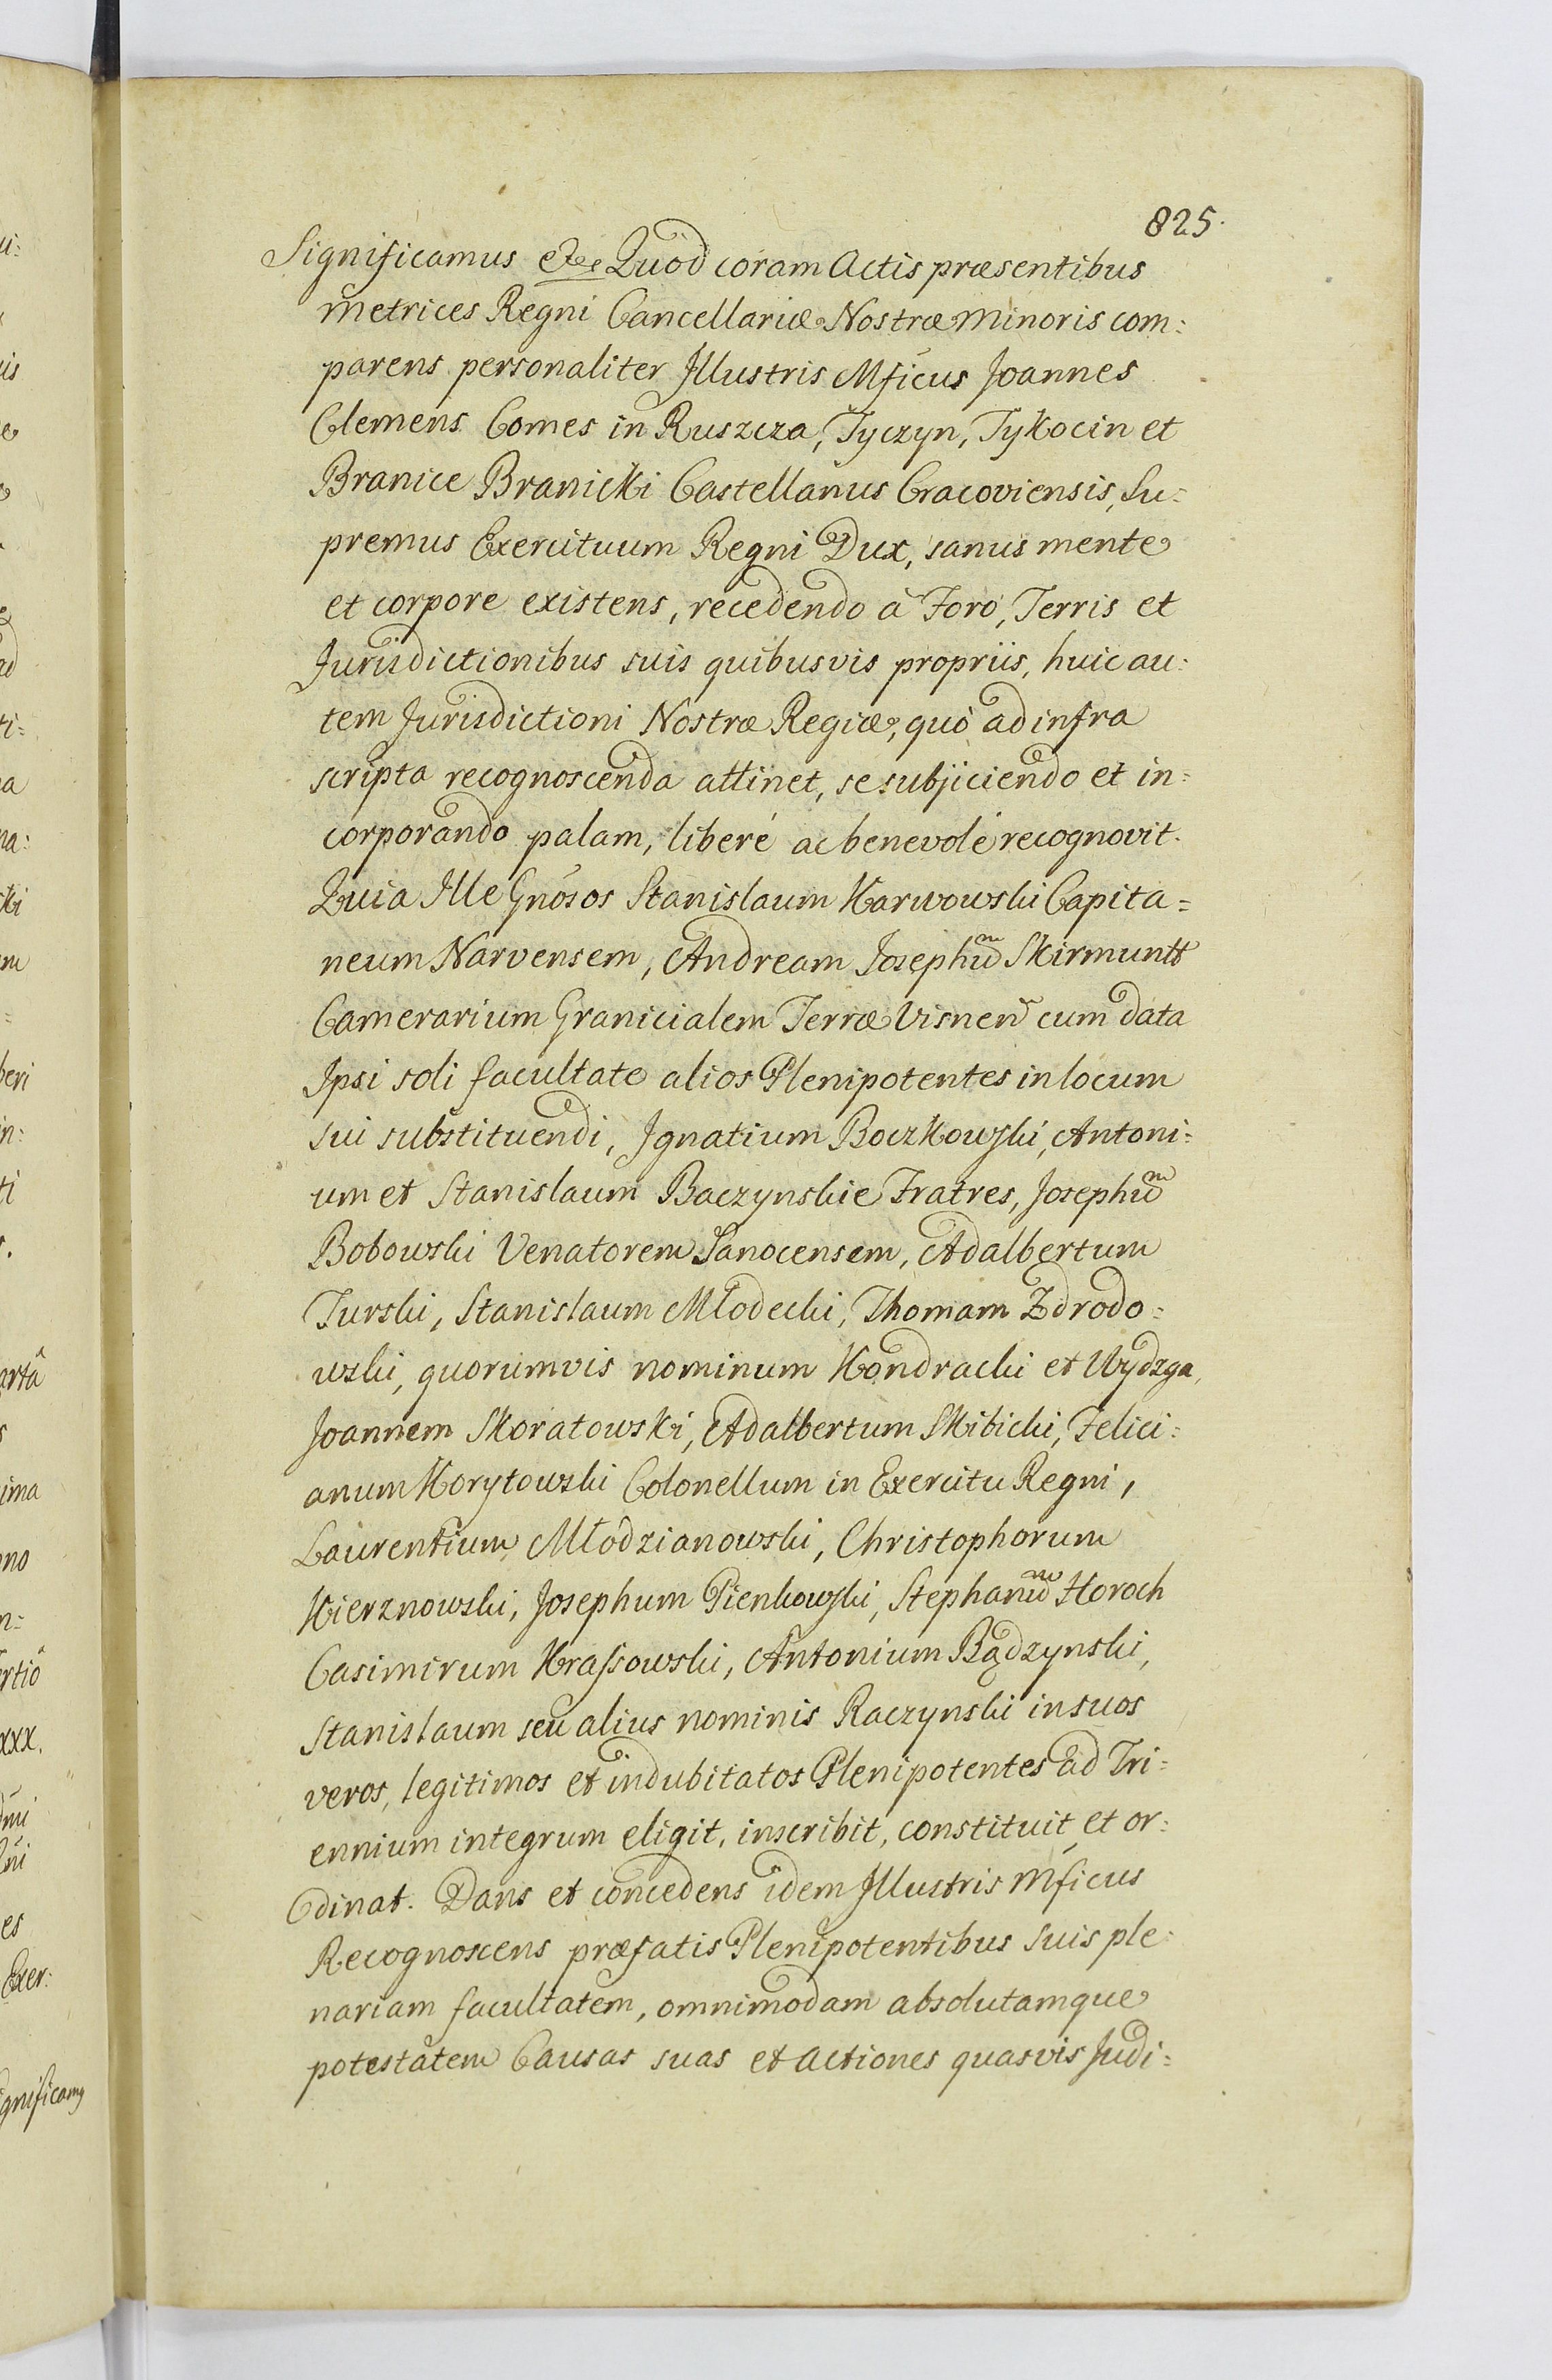 825.
Significamus etc Quod coram Actis præsentibus
metrices Regni Cancellariæ Nostræ minoris com:
parens personaliter Illustris Mficus Joannes
Clemens Comes in Ruszcza, Tyczyn, Tykocin et
Branice Branicki Castellanus Cracoviensis, Su=
premus Exercituum Regni Dux, sanus mente
et corpore existens, recedendo à Foro, Terris et
Jurisdictionibus suis quibusvis propriis, huic au:
tem Jurisdictioni Nostræ Regiæ, quò ad infra
scripta recognoscenda attinet, se subjiciendo et in=
corporando palam, liberé ac benevolé recognovit.
Quia Ille Gnosos Stanislaum Karwowski Capita=
neum Narvensem, Andream Josephum Skirmuntt
Camerarium Granicialem Terræ Visnen cum data
Ipsi soli facultate alios Plenipotentes in locum
sui substituendi, Ignatium Boczkowski, Antoni=
um et Stanislaum Baczynskie Fratres, Josephum
Bobowski Venatorem Sanocensem, Adalbertum
Turski, Stanislaum Młodecki, Thomam Zdrodo=
wski, quorumvis nominum Kondracki et Wydzga,
Joannem Skoratowski, Adalbertum Skibicki, Felici=
anum Korytowski Colonellum in Exercitu Regni,
Laurentium Młodzianowski, Christophorum
Kierznowski, Josephum Pienkowski, Stephanum Horoch
Casimirum Krassowski, Antonium Bądzynski,
Stanislaum seu alius nominis Raczynski in suos
veros, legitimos et indubitatos Plenipotentes ad Tri=
ennium integrum eligit, inscribit, constituit et or=
dinat. Dans et concedens idem Illustris Mficus
Recognoscens præfatis Plenipotentibus suis ple=
nariam facultatem, omnimodam absolutamque
potestatem Causas suas et Actiones quasvis Judi=